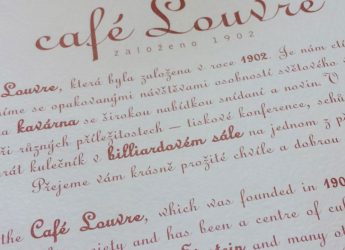 café Louvre
založeno 1902
Louvre, která byla založena v roce 1902. Je nám ctí
se opakovanými návštěvami osobností světového
a kavárna se širokou nabídkou snídaní a novin. V
různých příležitostech — tiskové konference,
kulečník v billiardovém sále na jednom z
Přejeme vám krásně prožité chvíle a dobrou
the Café Louvre, which was founded in 190
and has been a centre of
and many